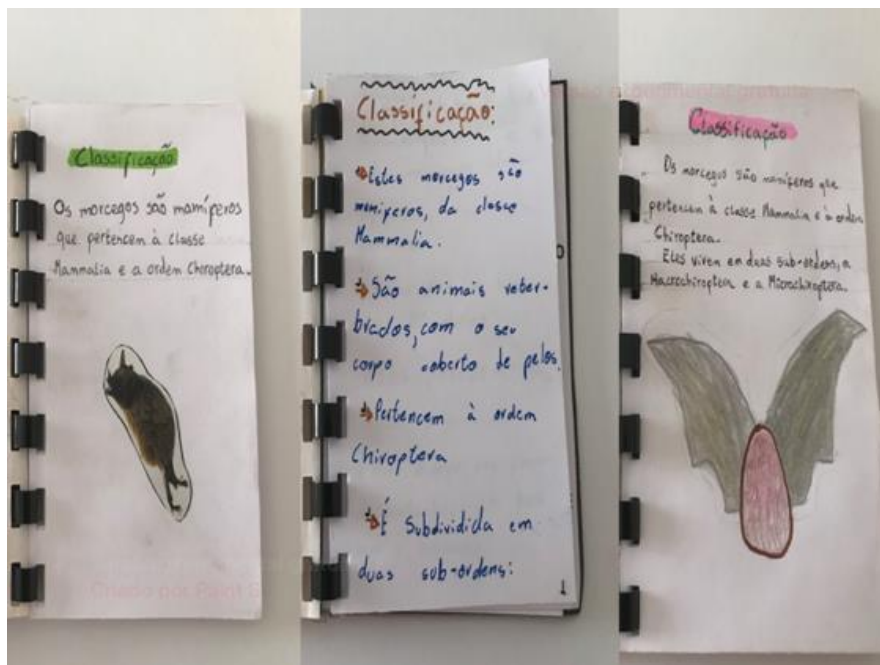 Classificação
Os morcegos são mamíferos
que pertencem à classe
Mammalia e a ordem Chiroptera.
Classificação:
Estes morcegos são
mamíferos, da classe
Mammalia.
São animais veter-
brados, com o seu
corpo coberto de pelos.
Pertencem à ordem
Chiroptera
É Subdividida em
duas sub-ordens:
Classificação
Os morcegos são mamíferos que
pertencem à classe Mammalia e à ordem
Chiroptera.
Eles vivem em duas sub-ordens, a
Macrochiroptera e a Microchiroptera.
Versão experimental gratuita
Criado por Paint S